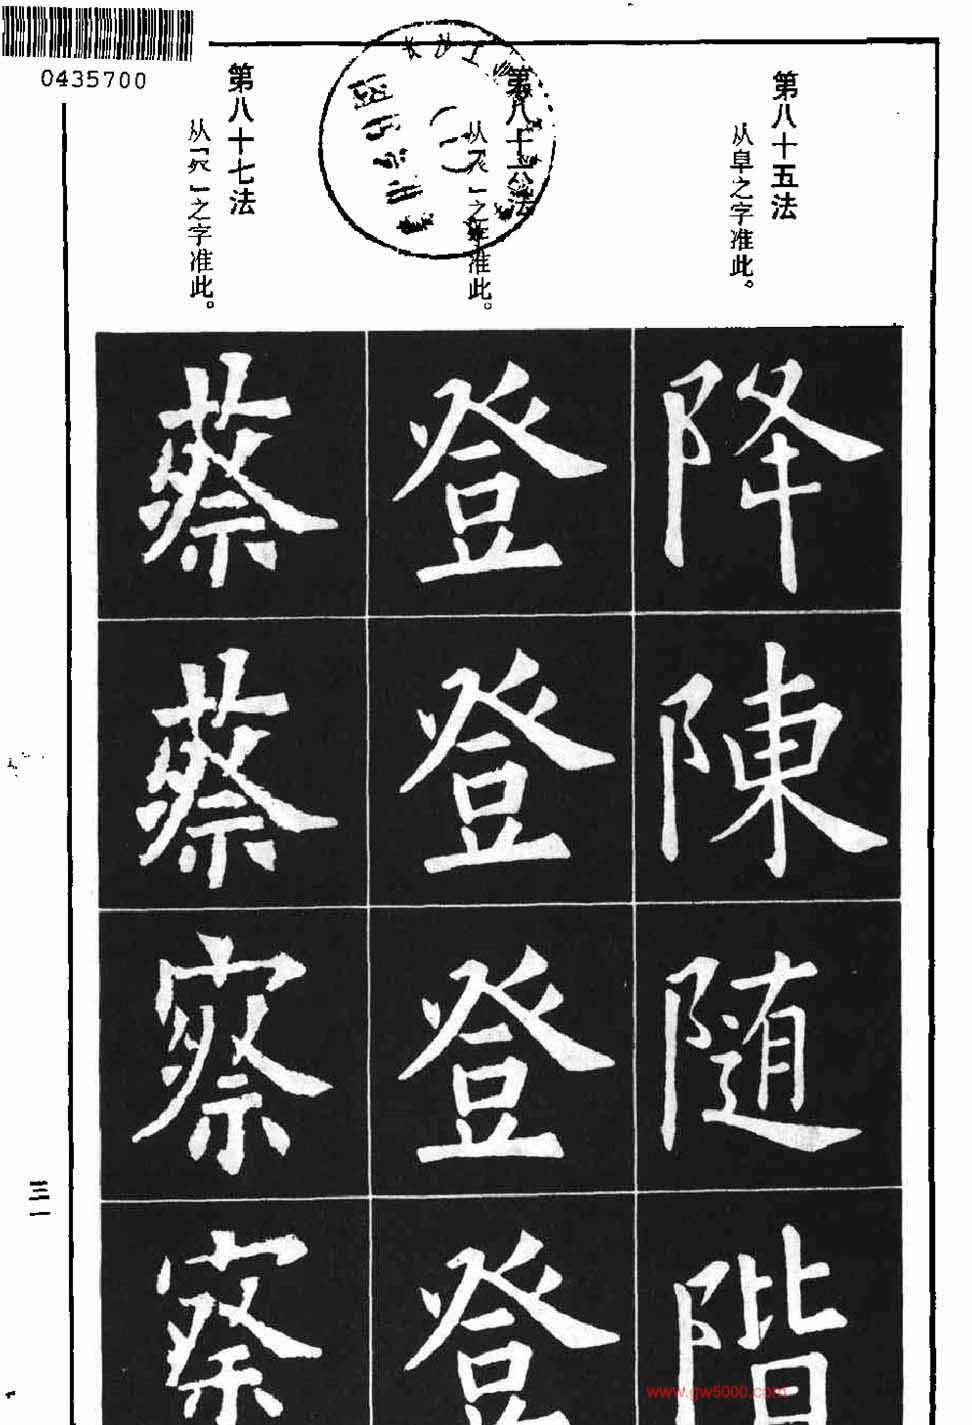 0435700
第八十五法
从阜之字准此。
第八十六法
从「癶」之字准此。
第八十七法
从「𣦼」之字准此。
降
陳
隨
階
登
登
登
登
蔡
蔡
察
察
三一
www.gw5000.com